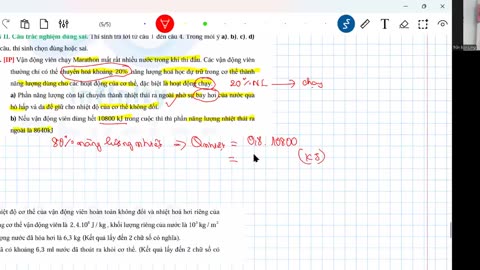 (5/5)
II. Câu trắc nghiệm đúng sai. Thí sinh trả lời từ câu 1 đến câu 4. Trong mỗi ý a), b), c), d)
câu, thí sinh chọn đúng hoặc sai.
[IP] Vận động viên chạy Marathon mất rất nhiều nước trong khi thi đấu. Các vận động viên
thường chỉ có thể chuyển hoá khoảng 20% năng lượng hoá học dự trữ trong cơ thể thành
năng lượng dùng cho các hoạt động của cơ thể, đặc biệt là hoạt động chạy.
20% NL → chạy
a) Phần năng lượng còn lại chuyển thành nhiệt thải ra ngoài nhờ sự bay hơi của nước qua
hô hấp và da để giữ cho nhiệt độ của cơ thể không đổi.
b) Nếu vận động viên dùng hết 10800 kJ trong cuộc thi thì phần năng lượng nhiệt thải ra
ngoài là 8640kJ
80% năng lượng nhiệt → Qnhiệt = 0,8 . 10800
= (KJ)
nhiệt độ cơ thể của vận động viên hoàn toàn không đổi và nhiệt hoá hơi riêng của
2,4.10⁶ J / kg , khối lượng riêng của nước là 10³ kg / m³
lượng nước đã hóa hơi là 6,3 kg (Kết quả lấy đến 2 chữ số có nghĩa).
đã có khoảng 6,3 ml nước đã thoát ra khỏi cơ thể. (Kết quả lấy đến 2 chữ số có